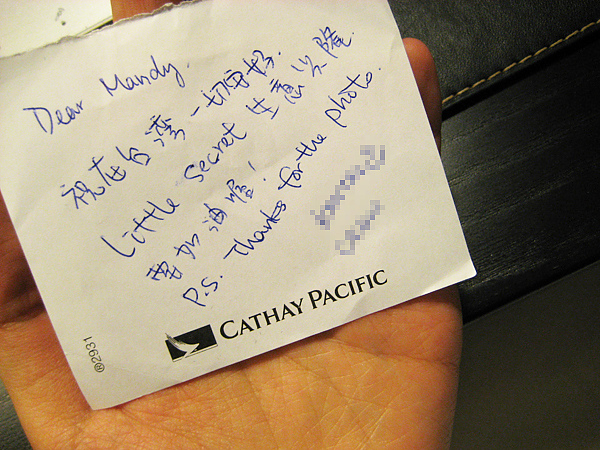 Dear Mandy,
祝在台灣一切安好.
Little Secret 生意兴隆.
要加油喔!
P.S. Thanks for the photo.
CATHAY PACIFIC
®2931